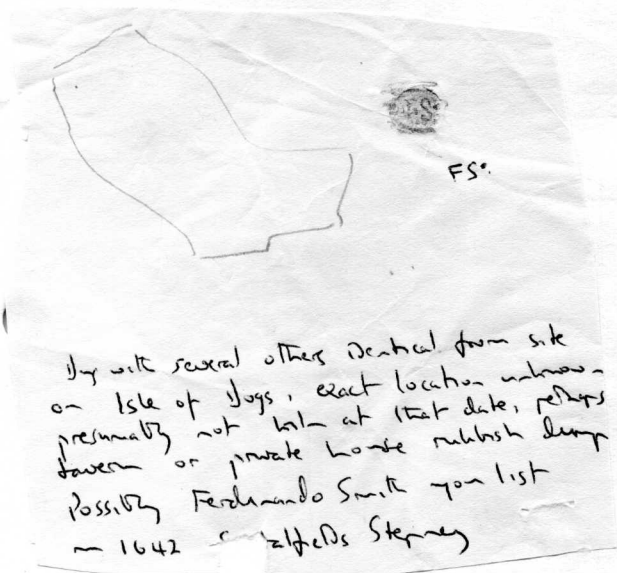 FS.
Dug with several others identical from site
on Isle of Dogs, exact location unknown
presumably not kiln at that date, perhaps
tavern or private house rubbish dump
Possibly Ferdinando Smith you list
in 1642 Stepney